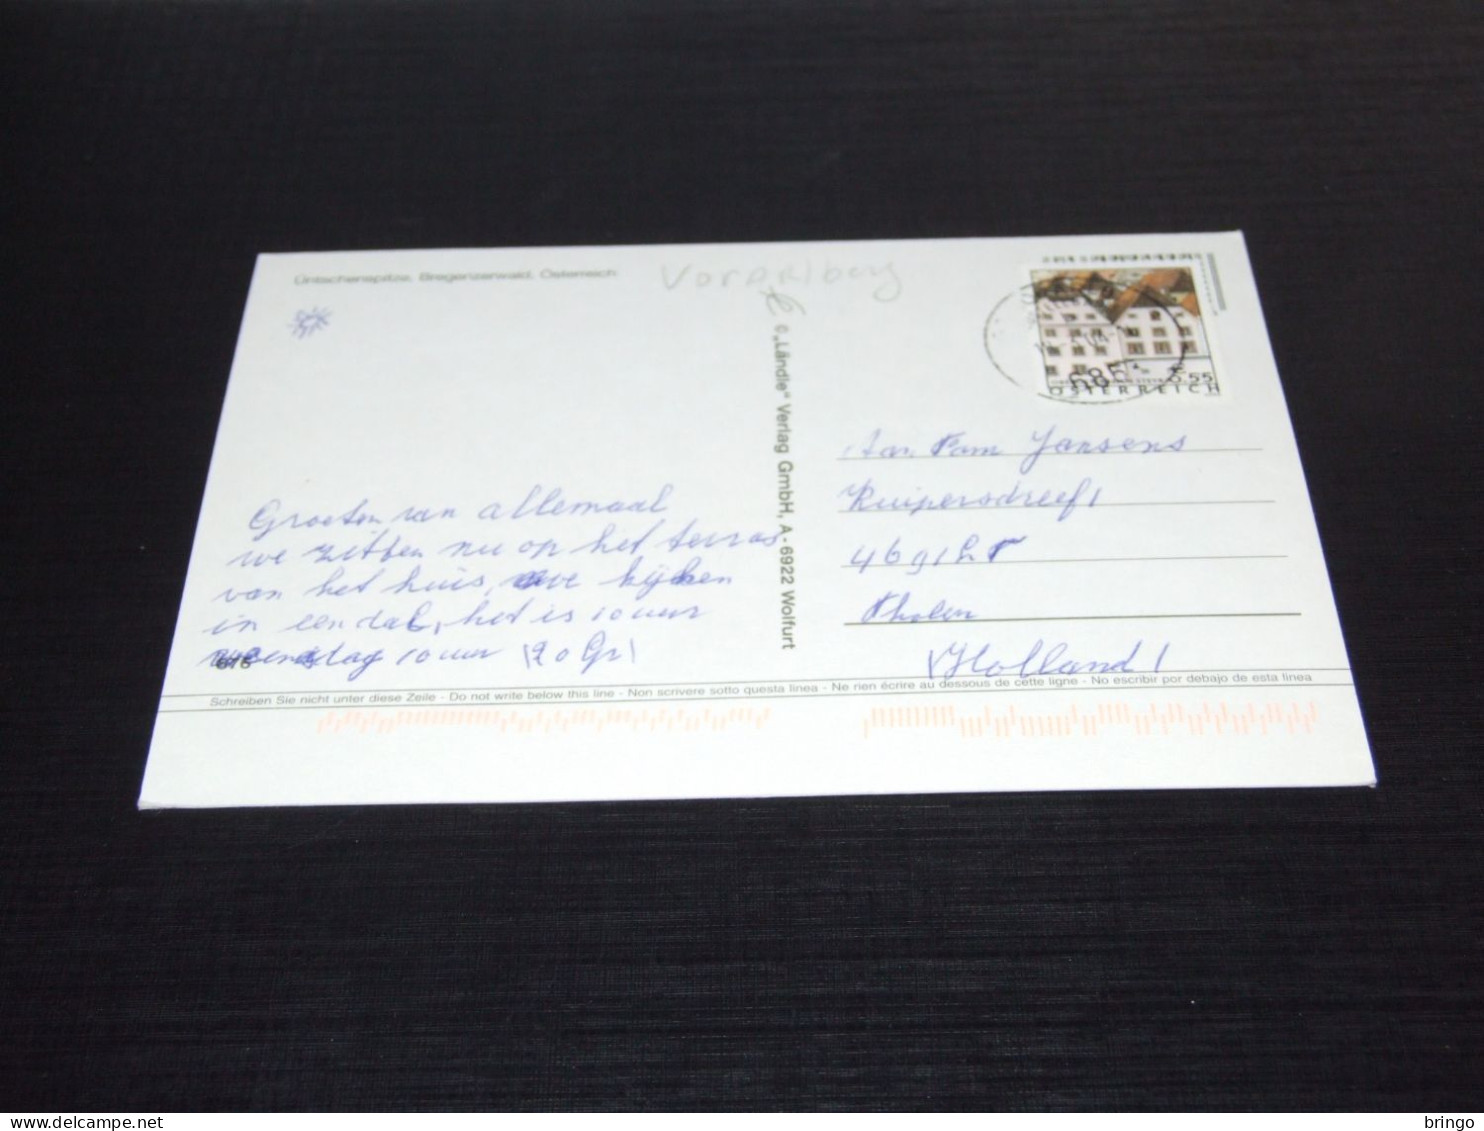 Üntschenspitze, Bregenzerwald, Österreich
Vorarlberg
© „Ländle" Verlag GmbH, A - 6922 Wolfurt
685
0.55
ÖSTERREICH
Groeten van allemaal
we zitten nu op het terras
van het huis, we kijken
in een dal, het is 10 uur
woensdag 10 uur (20 Gr)
616
Aan Fam Jansens
Kuipersdreef 1
4691
Tholen
(Holland)
Schreiben Sie nicht unter diese Zeile - Do not write below this line - Non scrivere sotto questa linea - Ne rien écrire au dessous de cette ligne - No escribir por debajo de esta linea
bringo